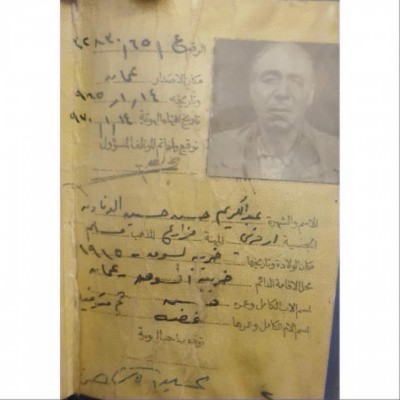 الرقم ع / ٦٥ / ٣٢٨٣٠
مكان الاصدار عمان
وتاريخه ١٤ / ١ / ٩٦٥
تاريخ انتهاء الهوية ١٤ / ١ / ٩٧٠
توقيع وخاتم الموظف المسؤول
الاسم والشهرة عبدالكريم حسين
الجنسية اردني المهنة مزارع المذهب مسلم
مكان الولادة وتاريخها خربة السوق ١٩١٥
محل الاقامة الدائم خربة السوق - عمان
اسم الاب الكامل وعمره
اسم الام الكامل وعمرها
توقيع صاحب الهوية